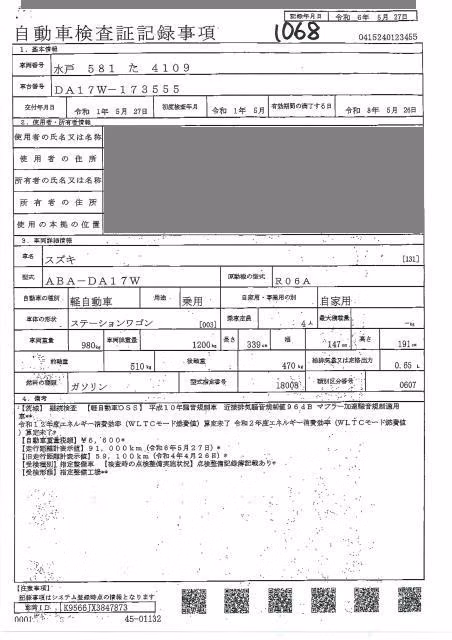 記録年月日 令和 6年 5月 27日
自動車検査証記録事項 1068 0415240123455
1. 基本情報
車両番号 水戸 581 た 4109
車台番号 DA17W-173555
交付年月日 令和 1年 5月 27日 初度検査年月 令和 1年 5月 有効期間の満了する日 令和 8年 5月 26日
2. 使用者・所有者情報
使用者の氏名又は名称
使用者の住所
所有者の氏名又は名称
所有者の住所
使用の本拠の位置
3. 車両詳細情報
車名 スズキ [131]
型式 ABA-DA17W 原動機の型式 R06A
自動車の種別 軽自動車 用途 乗用 自家用・事業用の別 自家用
車体の形状 ステーションワゴン [003] 乗車定員 4人 最大積載量 -kg
車両重量 980kg 車両総重量 1200kg 長さ 339cm 幅 147cm 高さ 191cm
前軸重 510kg 後軸重 470kg 総排気量又は定格出力 0.65L
燃料の種類 ガソリン 型式指定番号 18008 類別区分番号 0607
4. 備考
[茨城] 継続検査 [軽自動車OSS] 平成10年騒音規制車 近接排気騒音規制値96dB マフラー加速騒音規制適用
車**
令和12年度エネルギー消費効率(WLTCモード燃費値)算定未了 令和2年度エネルギー消費効率(WLTCモード燃費値
)算定未了*
[自動車重量税額] ¥6,600*
[走行距離計表示値] 91,000km(令和6年5月27日)*
[旧走行距離計表示値] 59,100km(令和4年4月26日)*
[受検種別] 指定整備車 [検査時の点検整備実施状況] 点検整備記録簿記載あり*
[受検形態] 指定整備工場**
[注意事項]
記録事項はシステム登録時点の情報となります
車両ID K9566JX3847873
45-01132